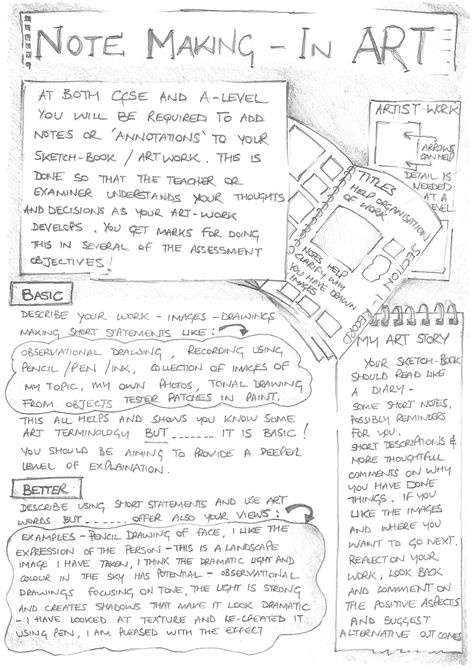 NOTE MAKING - IN ART
AT BOTH GCSE AND A-LEVEL
YOU WILL BE REQUIRED TO ADD
NOTES OR 'ANNOTATIONS' TO YOUR
SKETCH-BOOK / ARTWORK. THIS IS
DONE SO THAT THE TEACHER OR
EXAMINER UNDERSTANDS YOUR THOUGHTS
AND DECISIONS AS YOUR ART-WORK
DEVELOPS. YOU GET MARKS FOR DOING
THIS IN SEVERAL OF THE ASSESSMENT
OBJECTIVES!
ARTIST WORK
ARROWS
CAN HELP
DETAIL IS
NEEDED
AT A
LEVEL
TITLES
HELP ORGANISATION
OF WORK
NOTES HELP
CLARIFY WHY
YOU HAVE DRAWN
IMAGES
SECTION - 1
RECORD
BASIC
DESCRIBE YOUR WORK - IMAGES - DRAWINGS
MAKING SHORT STATEMENTS LIKE:
OBSERVATIONAL DRAWING, RECORDING USING
PENCIL/PEN/INK, COLLECTION OF IMAGES OF
MY TOPIC, MY OWN PHOTOS, TONAL DRAWING
FROM OBJECTS TESTER PATCHES IN PAINT,
THIS ALL HELPS AND SHOWS YOU KNOW SOME
ART TERMINOLOGY BUT ...... IT IS BASIC!
YOU SHOULD BE AIMING TO PROVIDE A DEEPER
LEVEL OF EXPLAINATION.
BETTER
DESCRIBE USING SHORT STATEMENTS AND USE ART
WORDS BUT ...... OFFER ALSO YOUR VIEWS:
EXAMPLES - PENCIL DRAWING OF FACE, I LIKE THE
EXPRESSION OF THE PERSON - THIS IS A LANDSCAPE
IMAGE I HAVE TAKEN, I THINK THE DRAMATIC LIGHT AND
COLOUR IN THE SKY HAS POTENTIAL - OBSERVATIONAL
DRAWINGS FOCUSING ON TONE, THE LIGHT IS STRONG
AND CREATES SHADOWS THAT MAKE IT LOOK DRAMATIC
- I HAVE LOOKED AT TEXTURE AND RE-CREATED IT
USING PEN, I AM PLEASED WITH THE EFFECT
MY ART STORY
YOUR SKETCH-BOOK
SHOULD READ LIKE
A DIARY -
SOME SHORT NOTES,
POSSIBLY REMINDERS
FOR YOU.
SHORT DESCRIPTIONS &
MORE THOUGHTFUL
COMMENTS ON WHY
YOU HAVE DONE
THINGS. IF YOU
LIKE THE IMAGES
AND WHERE YOU
WANT TO GO NEXT.
REFLECT ON YOUR
WORK, LOOK BACK
AND COMMENT ON
THE POSITIVE ASPECTS
AND SUGGEST
ALTERNATIVE OUTCOMES